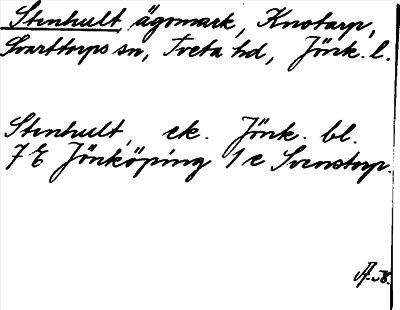 Stenhult, ägomark, Knotarp,
Svarttorps sn, Tveta hd, Jönk. l.
Stenhult, ek. Jönk. bl.
7 E Jönköping 1 e Svenstorp.